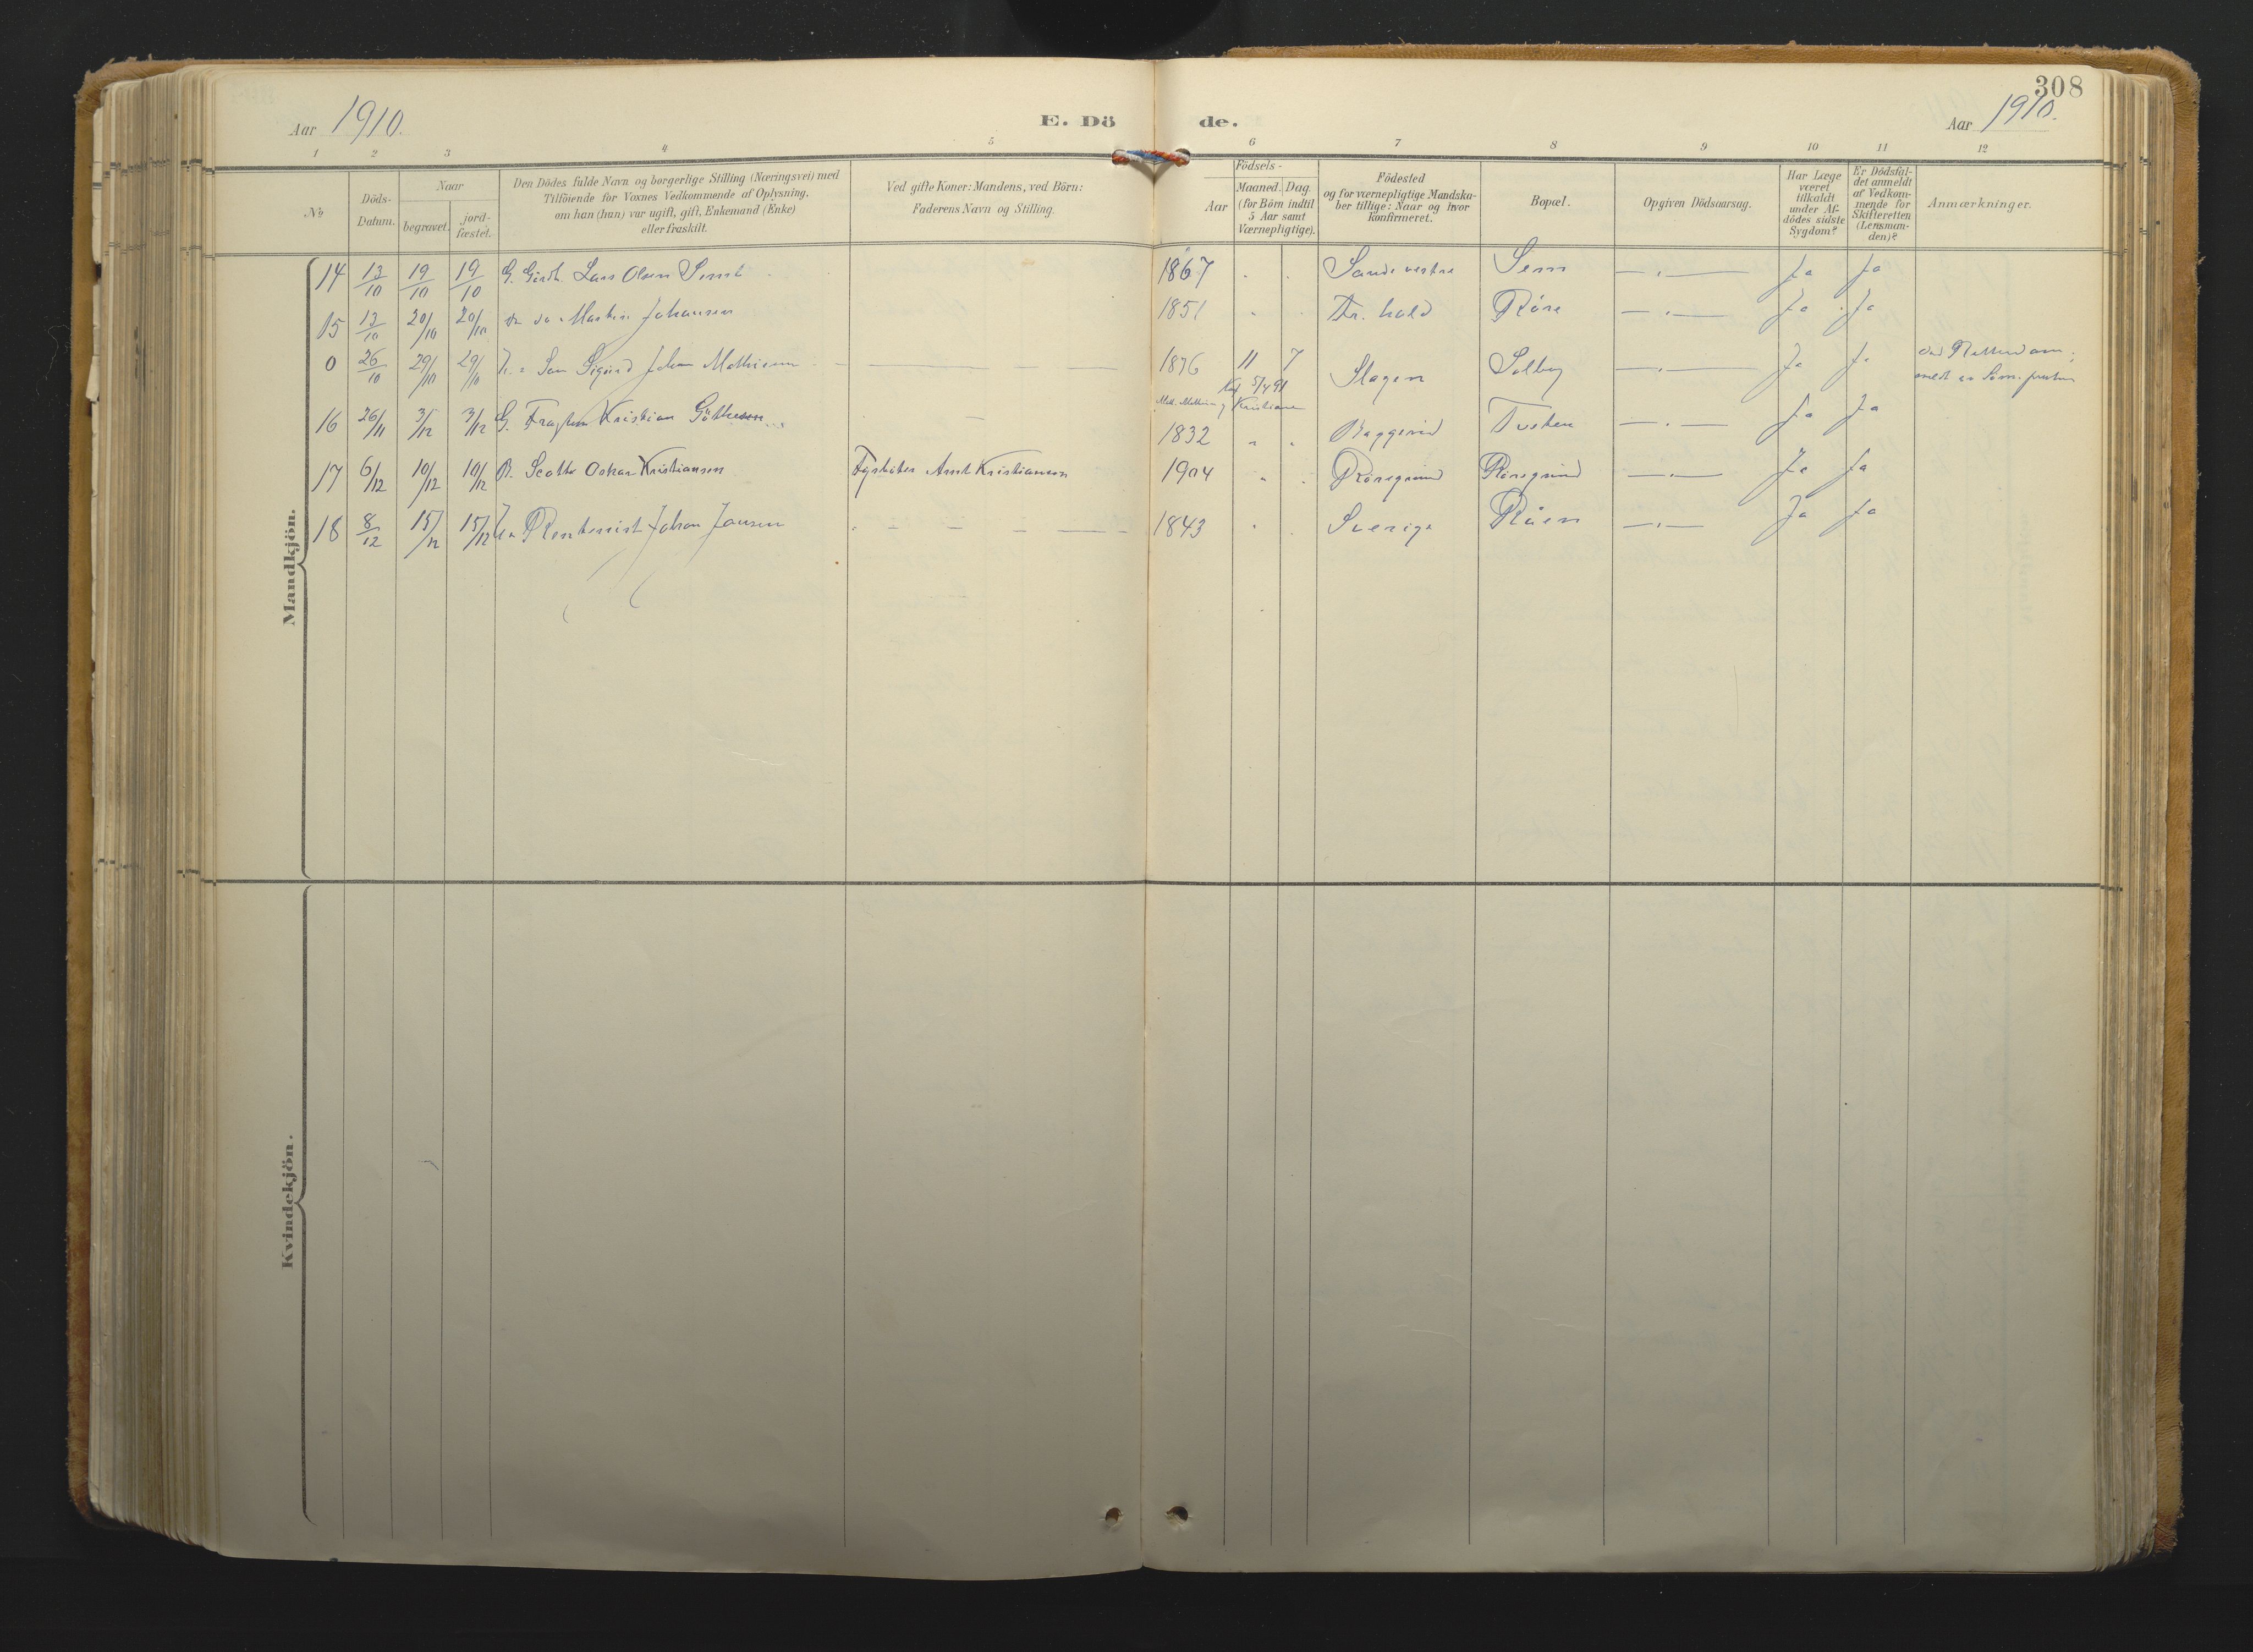 308
Aar 1910.
E. Dö de.
Aar 1910.
1 2 3 4 5 6 7 8 9 10 11 12
No
Döds-
Datum.
Naar
begravet.
jord-
fæstet.
Den Dödes fulde Navn og borgerlige Stilling (Næringsvei) med
Tilföiende for Voxnes Vedkommende af Oplysning,
om han (hun) var ugift, gift, Enkemand (Enke)
eller fraskilt.
Ved gifte Koner: Mandens, ved Börn:
Faderens Navn og Stilling.
Födsels-
Aar
Maaned. Dag.
(for Börn indtil
5 Aar samt
Værnepligtige).
Födested
og for værnepligtige Mandska-
ber tillige: Naar og hvor
Konfirmeret.
Bopæl.
Opgiven Dödsaarsag.
Har Læge
været
tilkaldt
under Af-
dödes sidste
Sygdom?
Er Dödsfal-
det anmeldt
af Vedkom-
mende for
Skifteretten
(Lensman-
den)?
Anmærkninger.
Mandkjön.
14 13/10 19/10 19/10 G. Lars Olsen 1867 Sande vestre Sem — " — Ja Ja
15 13/10 20/10 20/10 Johansen 1851 Röre — " — Ja Ja
0 26/10 29/10 29/10 Sigurd Johan Mathisen — 1876 11 7 Slagen Solberg — " — Ja Ja
Kristiane
16 26/11 3/12 3/12 G. Kristian — 1832 " " — " — Ja Ja
17 6/12 10/12 10/12 Oskar Kristiansen Fyrböter Arnt Kristiansen 1904 " " Röresgrind Röresgrind — " — Ja Ja
18 8/12 15/12 15/12 Rentenist Johan Jansen — 1843 " " Sverige Råen — " — Ja Ja
Kvindekjön.